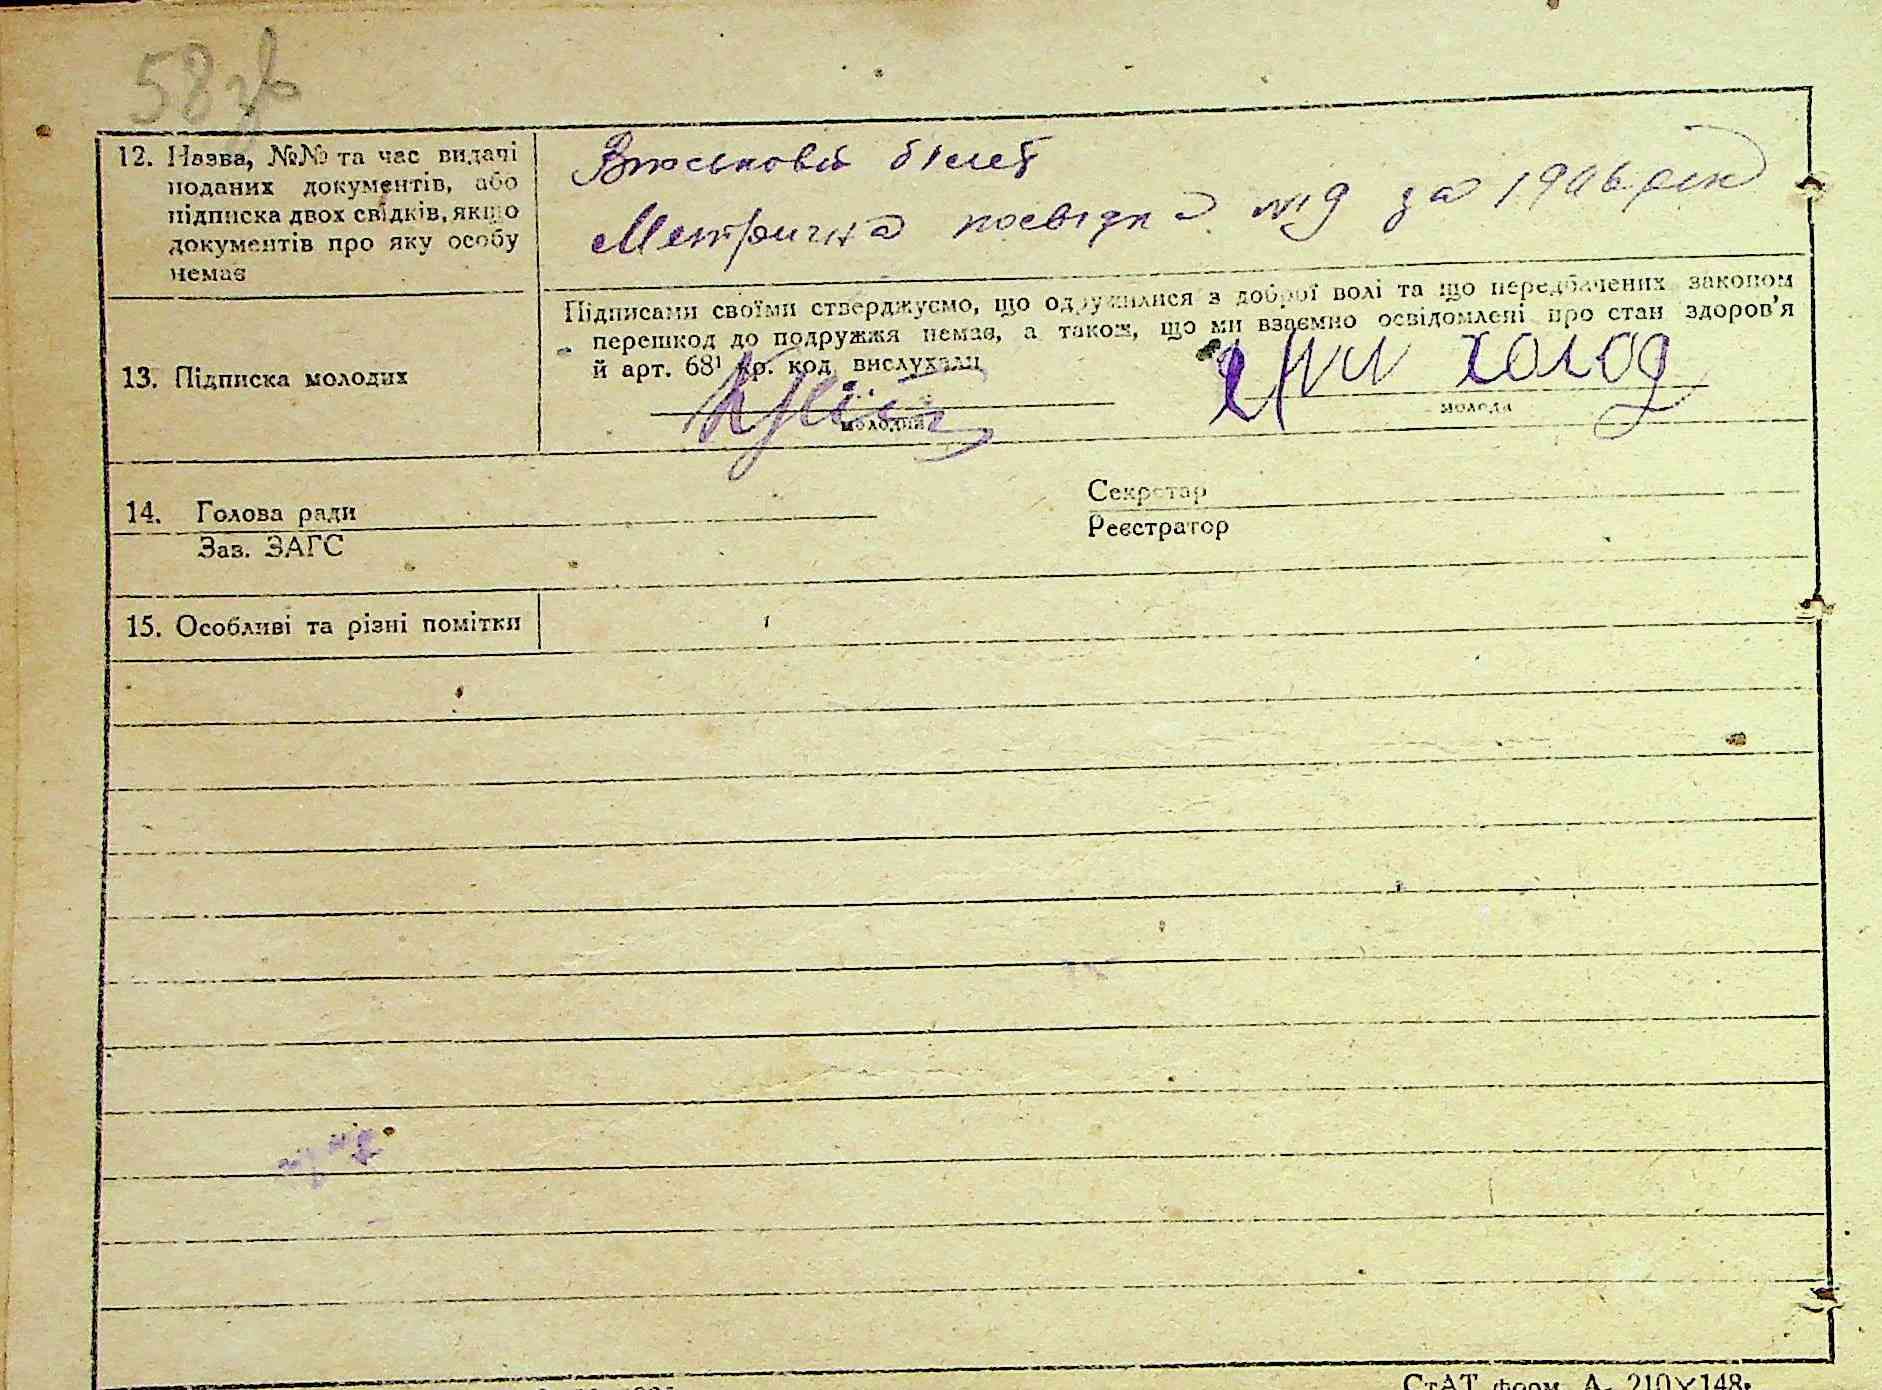 58 зв
12. Назва, №№ та час видачі
поданих документів, або
підписка двох свідків, якщо
документів про яку особу
немає
Військовій білет
Метрична посвідка №9 за 1906 рік
13. Підписка молодих
Підписами своїми стверджуємо, що одружилися з доброї волі та що передбачених законом
перешкод до подружжя немає, а також, що ми взаємно освідомлені про стан здоров'я
й арт. 68¹ кр. код вислухали
холод
молодий
молода
14. Голова ради
Зав. ЗАГС
Секретар
Реєстратор
15. Особливі та різні помітки
СтАТ форм. А₅ 210×148.